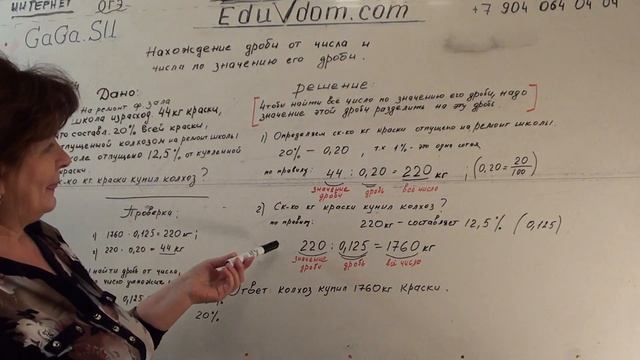 ИНТЕРНЕТ ОГЭ
EduVdom.com
+7 904 064 04 04
GaGa.SU
Нахождение дроби от числа и
числа по значению его дроби.
Дано:
На ремонт ф. зала
школа израсход. 44 кг краски,
что составл. 20% всей краски,
отпущенной колхозом на ремонт школы
отпущено 12,5% от купленной
краски.
ск-ко кг краски купил колхоз?
Проверка:
1) 1760 · 0,125 = 220 кг;
2) 220 · 0,20 = 44 кг
найти дробь от числа,
число умножить
0,125
20%
Решение:
Чтобы найти все число по значению его дроби, надо
значение этой дроби разделить на эту дробь.
1) Определяем ск-ко кг краски отпущено на ремонт школы.
20% – 0,20 , т.к 1% – это одна сотая
по правилу: 44 : 0,20 = 220 кг ; (0,20 = 20/100)
значение дроби дробь все число
2) Ск-ко кг краски купил колхоз?
по правилу: 220 кг – составляет 12,5% (0,125)
220 : 0,125 = 1760 кг
значение дроби дробь все число
Ответ: колхоз купил 1760 кг краски.